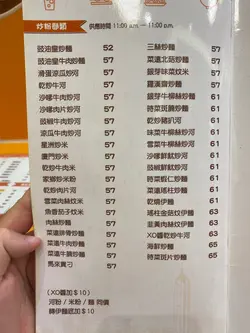 炒粉麵飯
供應時間 11:00 a.m. — 11:00 p.m.
豉油皇炒麵 52
豉油皇牛肉炒麵 57
滑蛋涼瓜炒河 57
乾炒牛河 57
沙嗲牛肉炒河 57
豉椒牛肉炒河 57
涼瓜牛肉炒河 57
星洲炒米 57
廈門炒米 57
乾炒牛肉米 57
乾炒肉片河 57
家鄉炒米粉 57
雪菜肉絲炆米 57
魚香茄子炆米 57
肉絲炒麵 57
菜遠排骨炒麵 57
菜遠牛肉炒麵 57
菜遠牛腩炒麵 57
馬來貴刁 57
三絲炒麵 57
菜遠北菇炒麵 57
銀芽味菜炆米 57
羅漢齋炒麵 57
銀芽牛柳絲炒麵 61
時菜斑片炒河 61
乾炒豬扒河 61
味菜牛柳絲炒河 61
豉椒牛柳絲炒河 61
沙嗲鮮魷炒河 61
豉椒鮮魷炒河 61
時菜蝦仁炒麵 61
菜遠瑤柱炒麵 61
乾燒伊麵 61
瑤柱金菇炆伊麵 63
韭黃肉絲炆伊麵 63
XO醬乾炒牛河 65
海鮮炒麵 65
時菜斑片炒麵 65
(XO醬加＄10)
河粉 / 米粉 / 麵 同價
轉伊麵底加＄10)